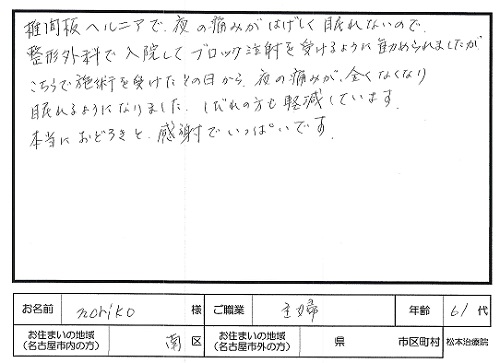 椎間板ヘルニアで、夜の痛みがはげしく眠れないので、
整形外科で入院してブロック注射を受けるように勧められましたが
こちらで施術を受けたその日から、夜の痛みが、全くなくなり
眠れるようになりました。しびれの方も軽減しています。
本当におどろきと、感謝でいっぱいです。
お名前 noriko 様 ご職業 主婦 年齢 61 代
お住まいの地域 (名古屋市内の方) 南 区 お住まいの地域 (名古屋市外の方) 県 市区町村 松本治療院